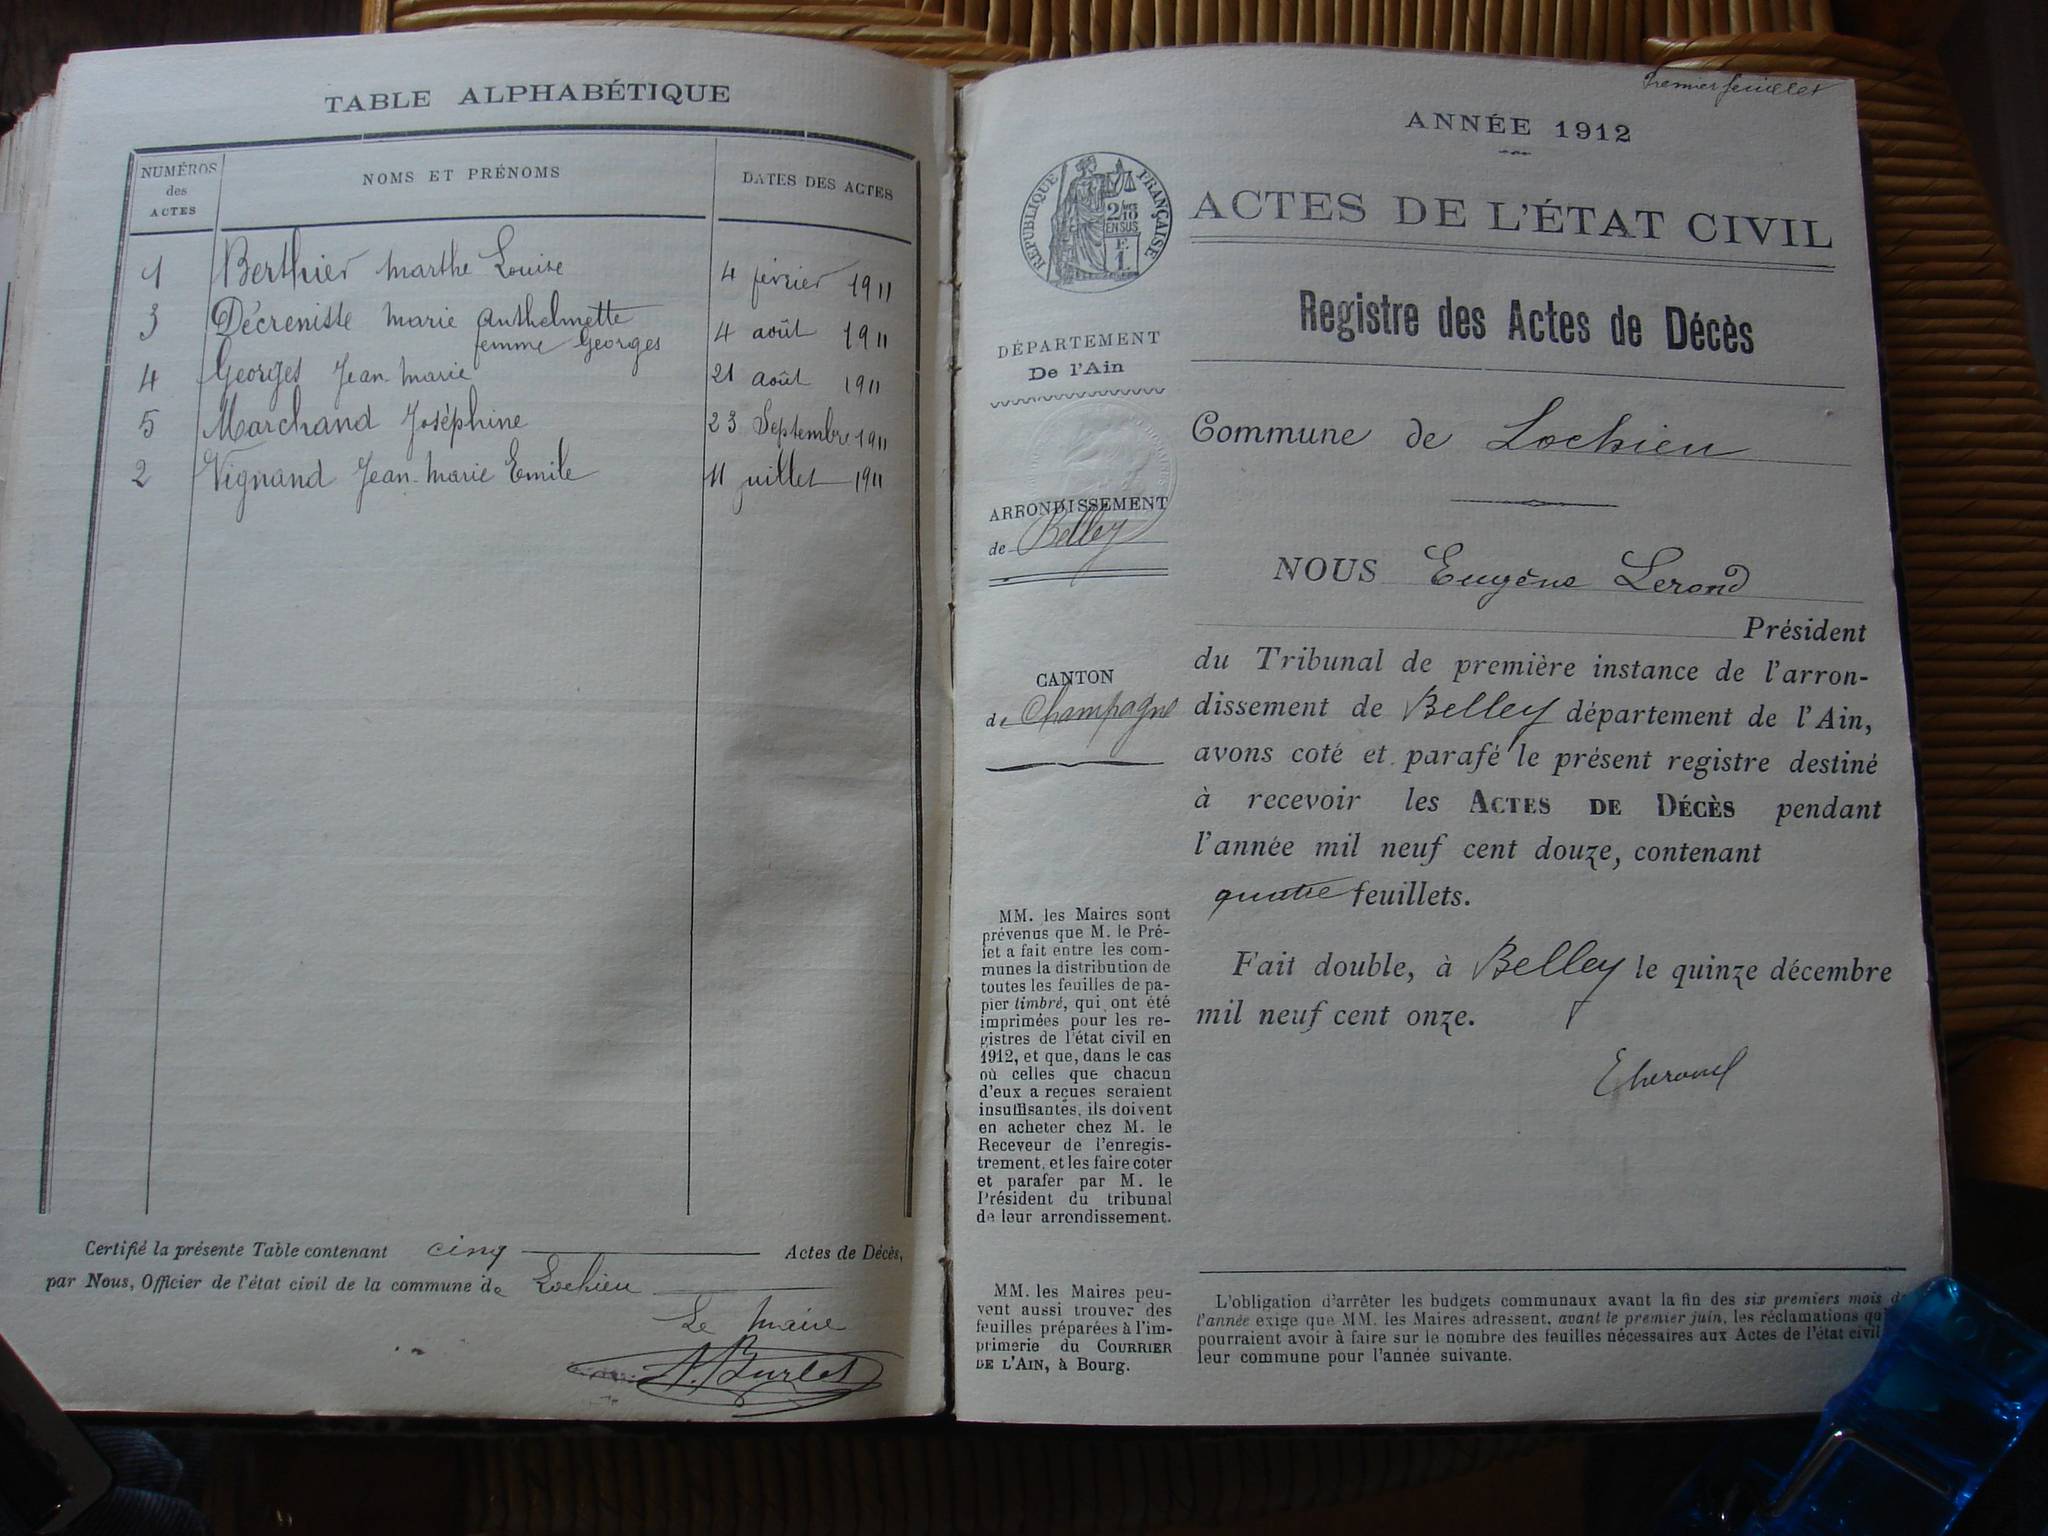 TABLE ALPHABÉTIQUE
NUMÉROS
des
ACTES
NOMS ET PRÉNOMS
DATES DES ACTES
1 Berthier Marthe Louise 4 février 1911
3 Décreniste Marie Anthelmette 4 août 1911
femme Georges
4 Georges Jean Marie 21 août 1911
5 Marchand Joséphine 23 Septembre 1911
2 Vignand Jean-Marie Emile 11 juillet 1911
Certifié la présente Table contenant cinq Actes de Décès,
par Nous, Officier de l'état civil de la commune de Lochieu
Le Maire
A. Burlet
Premier feuillet
ANNÉE 1912
RÉPUBLIQUE FRANÇAISE
2/10
EN SUS
F.
1.
ACTES DE L'ÉTAT CIVIL
Registre des Actes de Décès
DÉPARTEMENT
De l'Ain
Commune de Lochieu
ARRONDISSEMENT
de Belley
CANTON
de Champagne
NOUS Eugène Lerond
Président
du Tribunal de première instance de l'arron-
dissement de Belley département de l'Ain,
avons coté et parafé le présent registre destiné
à recevoir les ACTES DE DÉCÈS pendant
l'année mil neuf cent douze, contenant
quatre feuillets.
Fait double, à Belley le quinze décembre
mil neuf cent onze.
MM. les Maires sont
prévenus que M. le Pré-
fet a fait entre les com-
munes la distribution de
toutes les feuilles de pa-
pier timbré, qui ont été
imprimées pour les re-
gistres de l'état civil en
1912, et que, dans le cas
où celles que chacun
d'eux a reçues seraient
insuffisantes, ils doivent
en acheter chez M. le
Receveur de l'enregis-
trement, et les faire coter
et parafer par M. le
Président du tribunal
de leur arrondissement.
MM. les Maires peu-
vent aussi trouver des
feuilles préparées à l'im-
primerie du COURRIER
DE L'AIN, à Bourg.
L'obligation d'arrêter les budgets communaux avant la fin des six premiers mois de
l'année exige que MM. les Maires adressent, avant le premier juin, les réclamations qu'
pourraient avoir à faire sur le nombre des feuilles nécessaires aux Actes de l'état civil
leur commune pour l'année suivante.